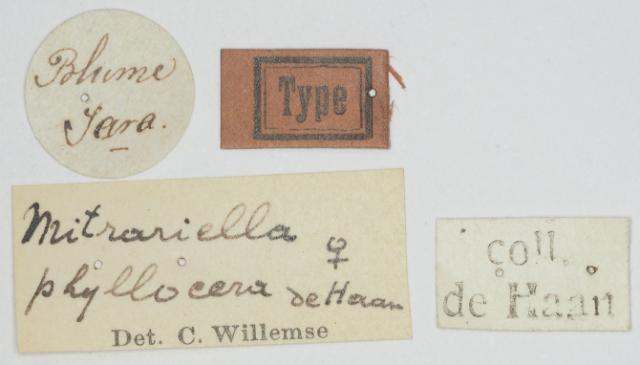 Blume
Java.
Type
Mitrariella ♀
phyllocera de Haan
Det. C. Willemse
coll.
de Haan